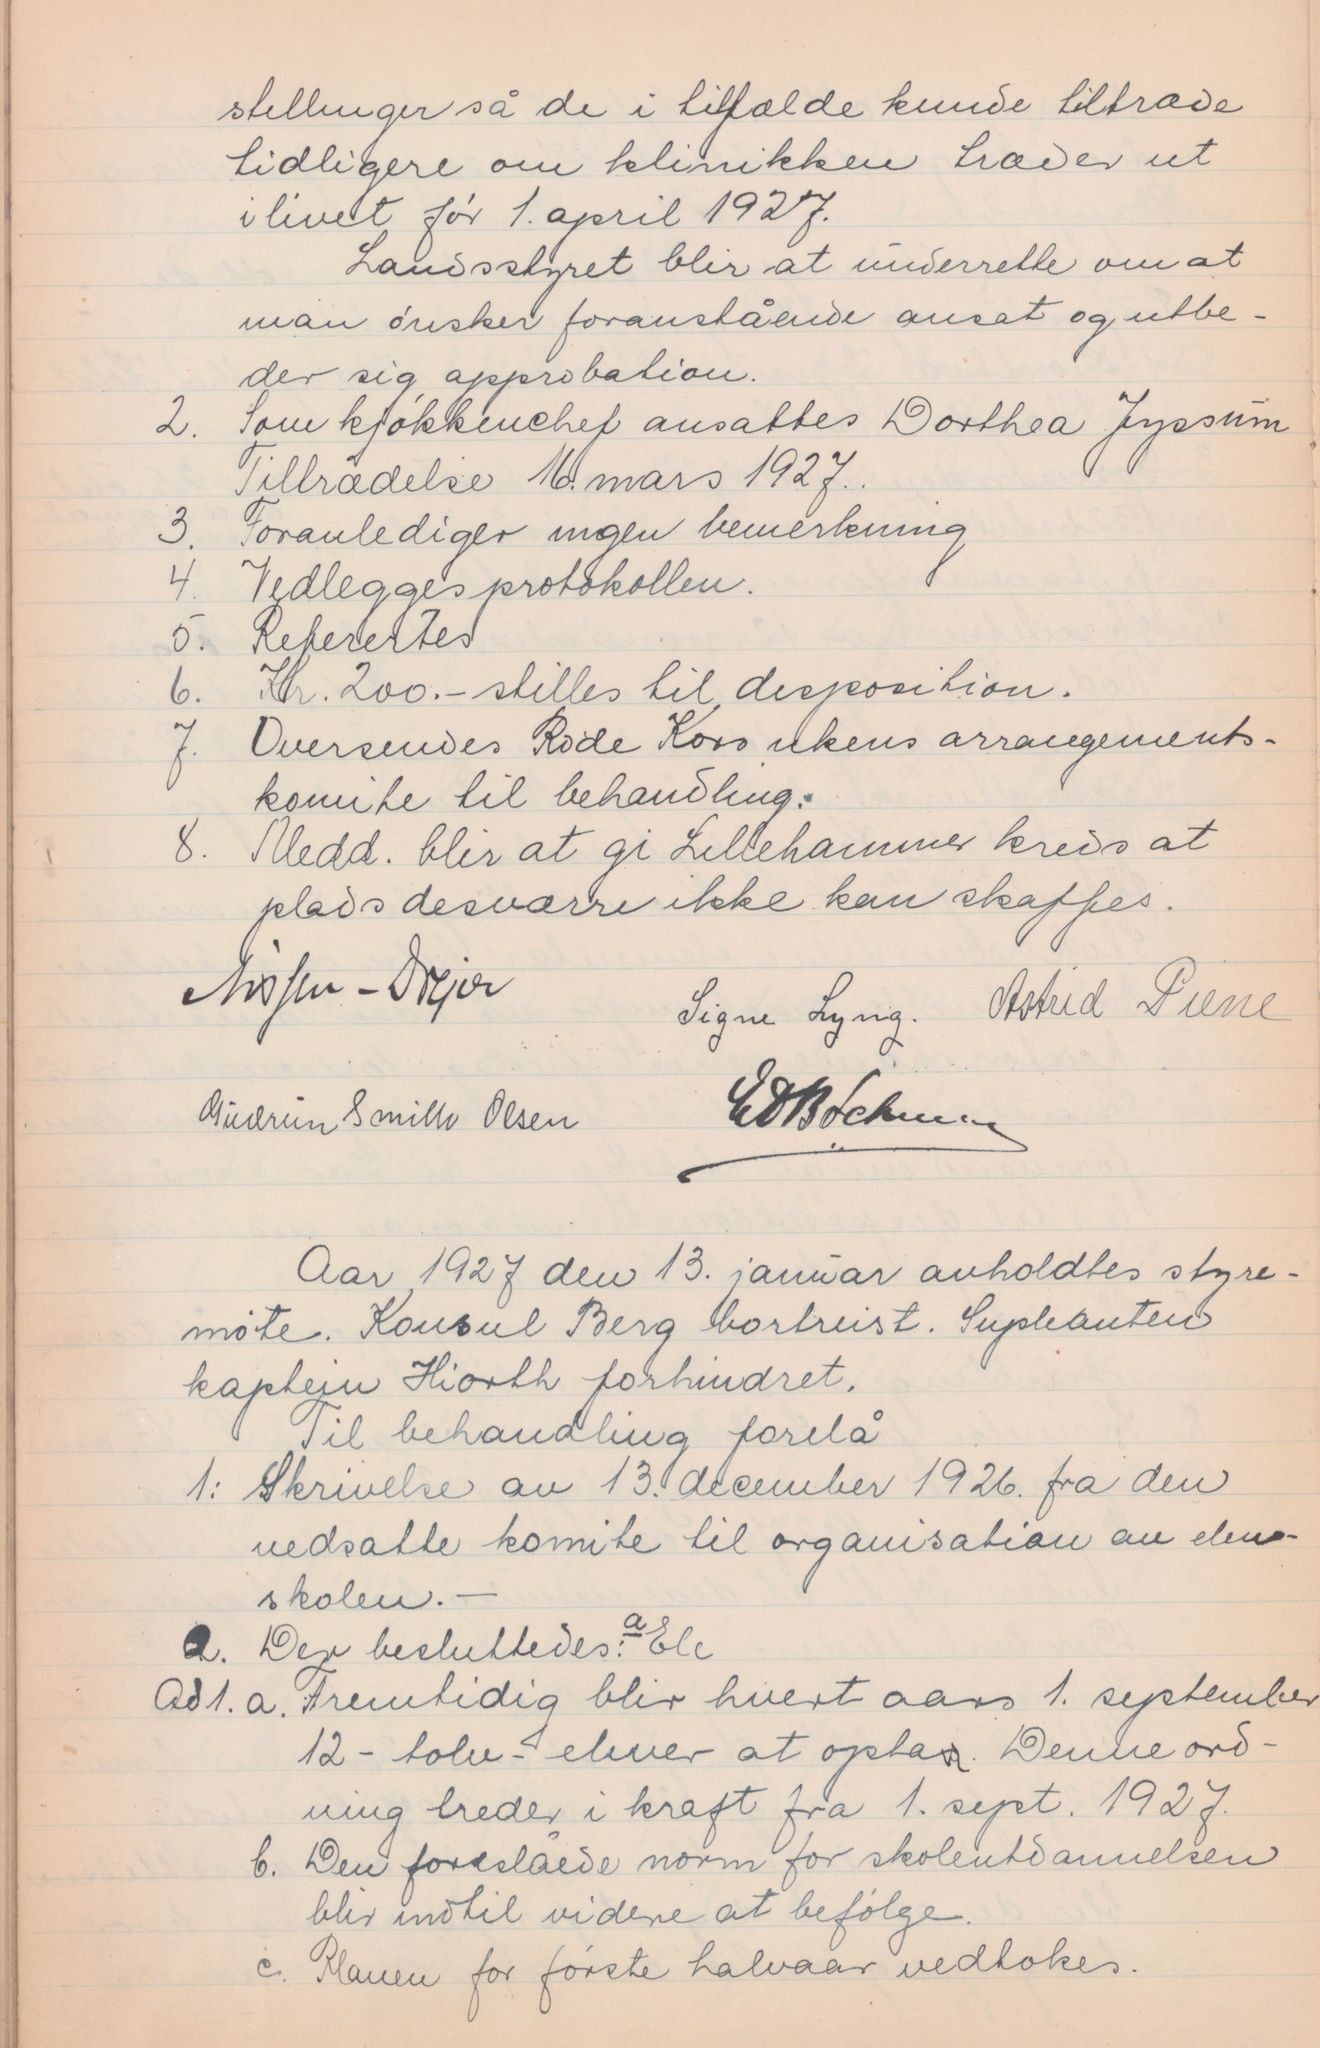 stellinger så de i tilfælde kunde tiltræde
tidligere om klinikken træder ut
i livet før 1. april 1927.
Landsstyret blir at underrette om at
man ønsker foranstående ansat og utbe-
der sig approbation.
2. Som kjøkkenchef ansattes Dorthea Jyssum
Tiltrædelse 16. mars 1927.
3. Foranlediger ingen bemerkning
4. Vedlegges protokollen.
5. Refererte​s
6. Kr. 200.- stilles til disposition.
7. Oversendes Røde Kors ukens arrangements-
komite til behandling.
8. Medd. blir at gi Lillehammer kreds at
plads desværre ikke kan skaffes.
Nissen-Drejer
Signe Lyng. Astrid Piene
Gudrun Smith Olsen
Aar 1927 den 13. januar avholdtes styre-
møte. Konsul Berg bortreist. Supleanten
kaptein Hiorth forhindret.
Til behandling forelå
1: Skrivelse av 13. december 1926. fra den
nedsatte komite til organisation av elev-
skolen. —
2. Der besluttedes: a Ele
Ad 1. a. Fremtidig blir hvert aars 1. september
12 - tolv - elever at opta. Denne ord-
ning treder i kraft fra 1. sept. 1927.
b. Den foreslåede norm for skoleutdannelsen
blir indtil videre at befølge.
c. Planen for første halvaar vedtokes.